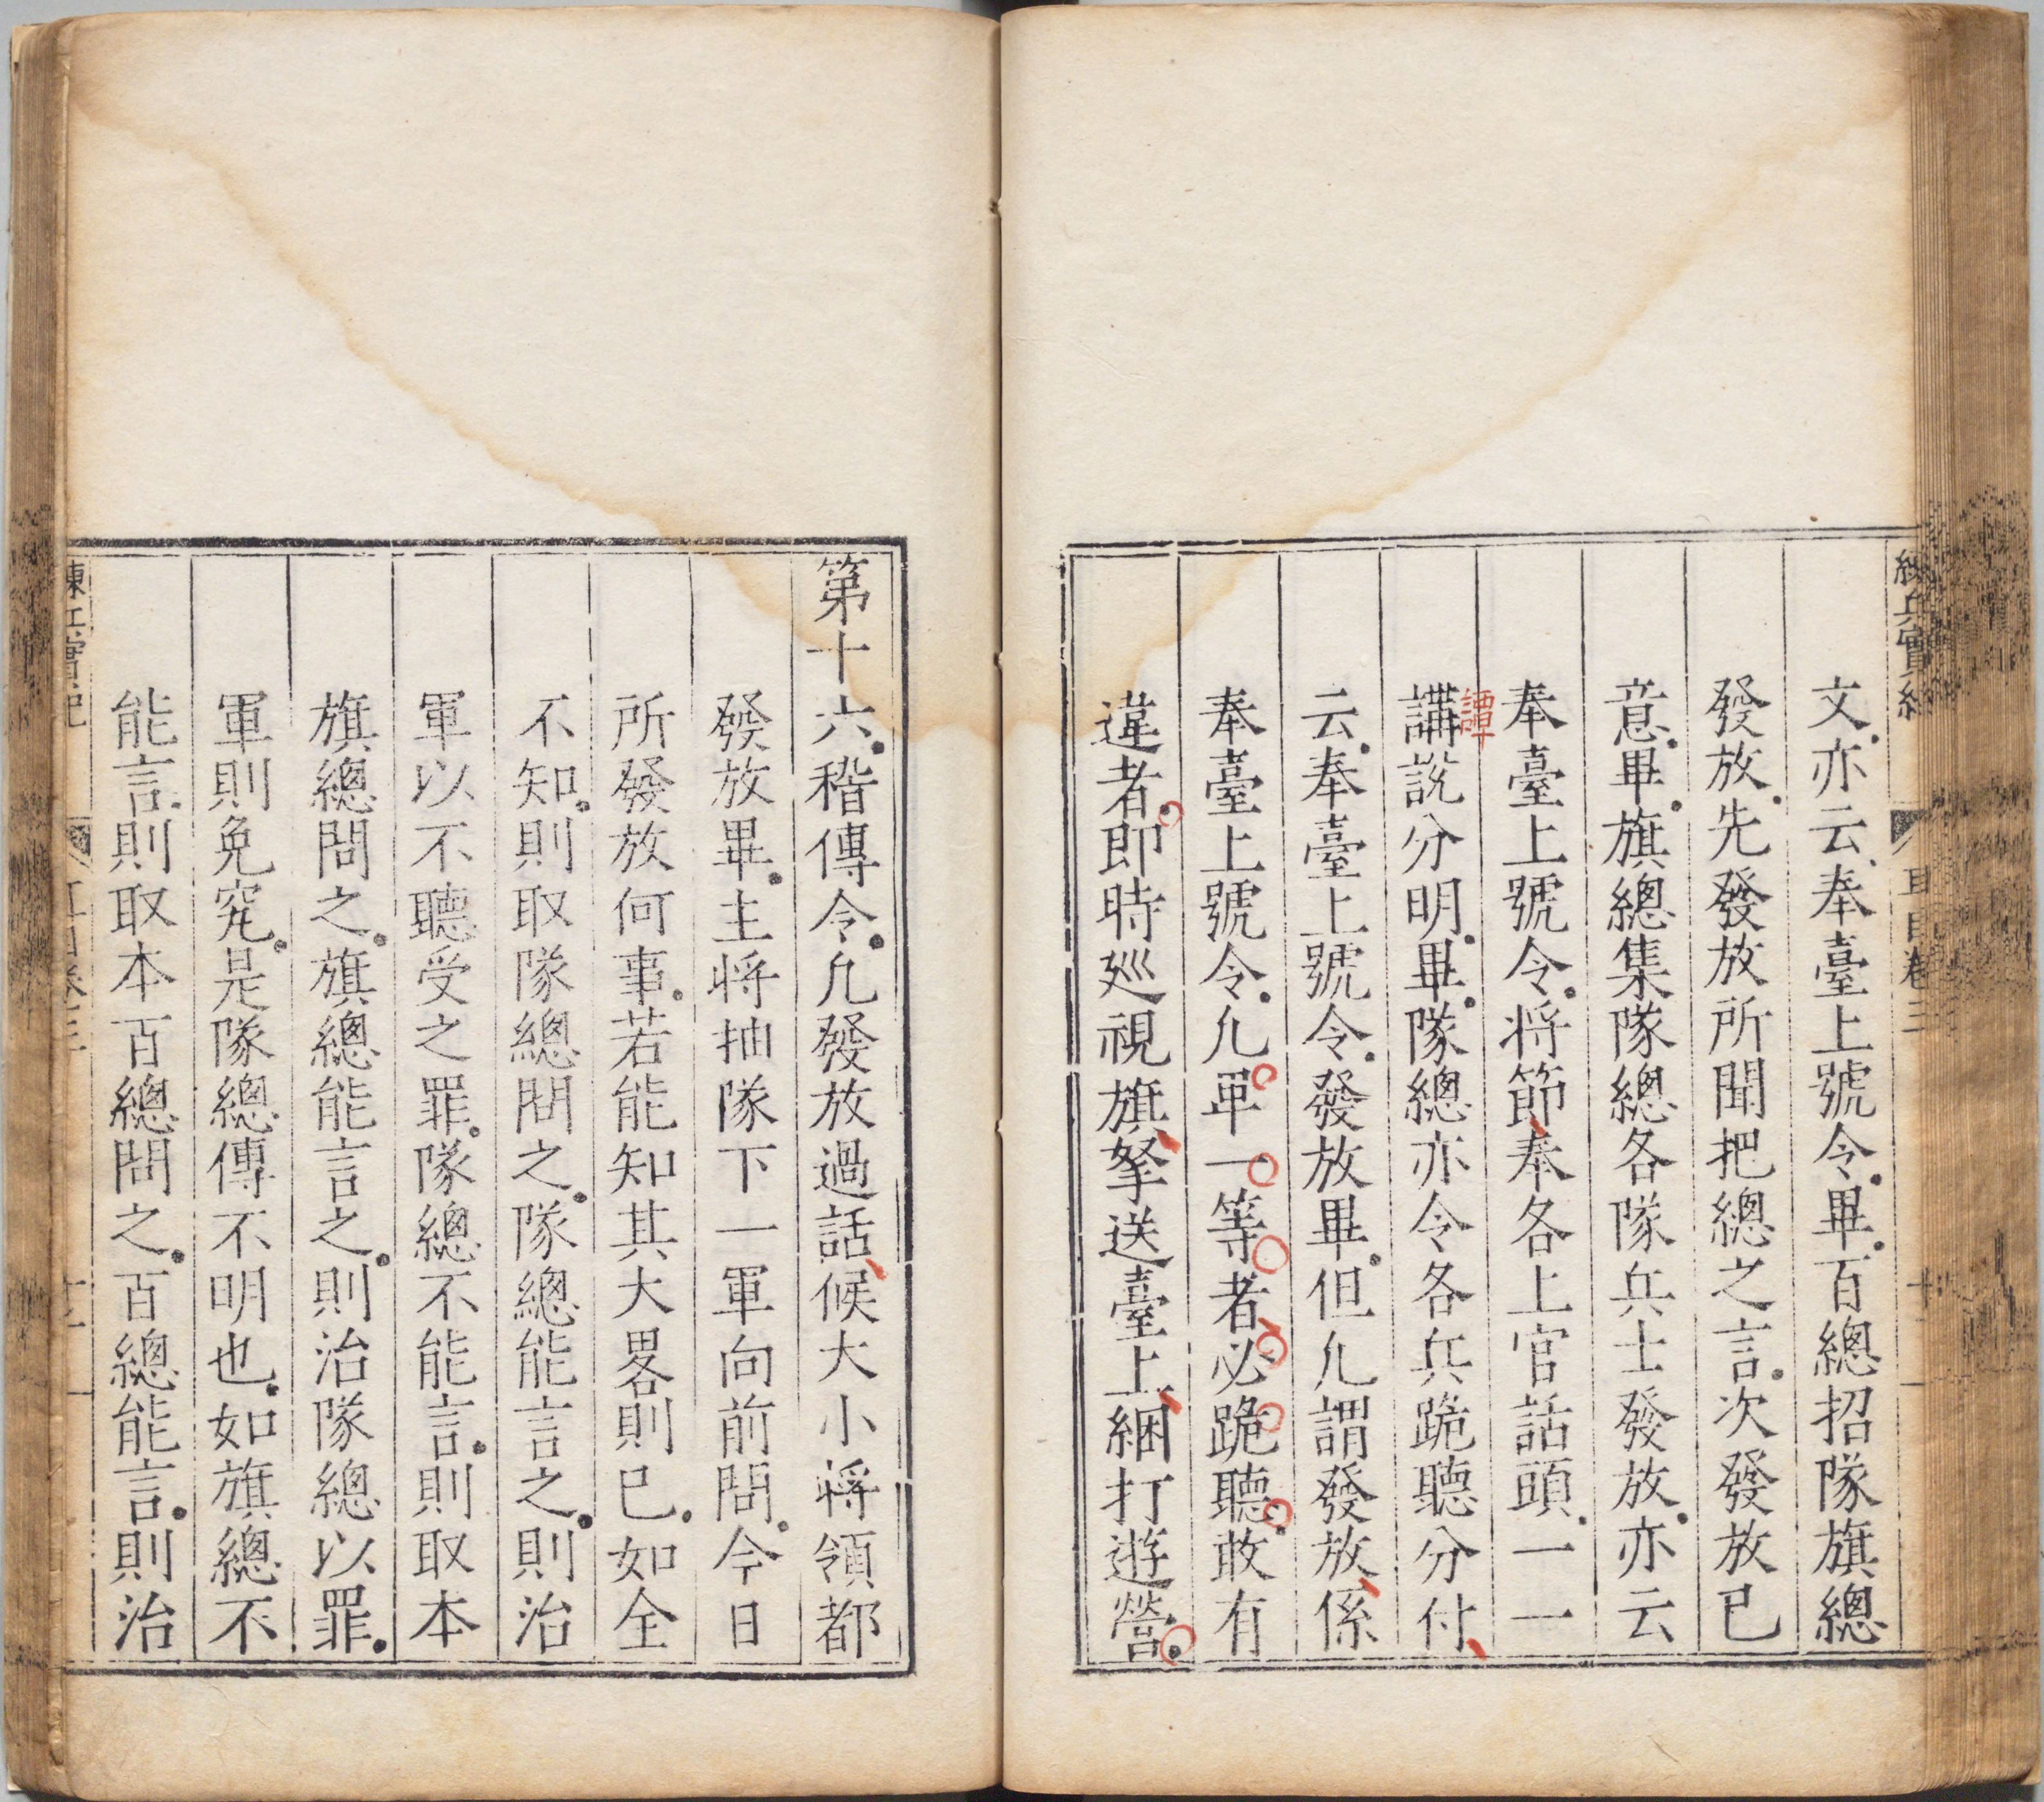 練兵實紀 耳目卷三 十一
文亦云奉臺上號令畢百總招隊旗總
發放先發放所聞把總之言次發放已
意畢旗總集隊總各隊兵士發放亦云
奉臺上號令將節奉各上官話頭一一
譚
講說分明畢隊總亦令各兵跪聽分付
云奉臺上號令發放畢但凢謂發放係
奉臺上號令凢單一等者必跪聽敢有
違者即時廵視旗拏送臺上綑打遊營
第十六稽傳令凢發放過話候大小將領都
發放畢主將抽隊下一軍向前問今日
所發放何事若能知其大畧則已如全
不知則取隊總問之隊總能言之則治
軍以不聽受之罪隊總不能言則取本
旗總問之旗總能言之則治隊總以罪
軍則免究是隊總傳不明也如旗總不
能言則取本百總問之百總能言則治
練兵實紀